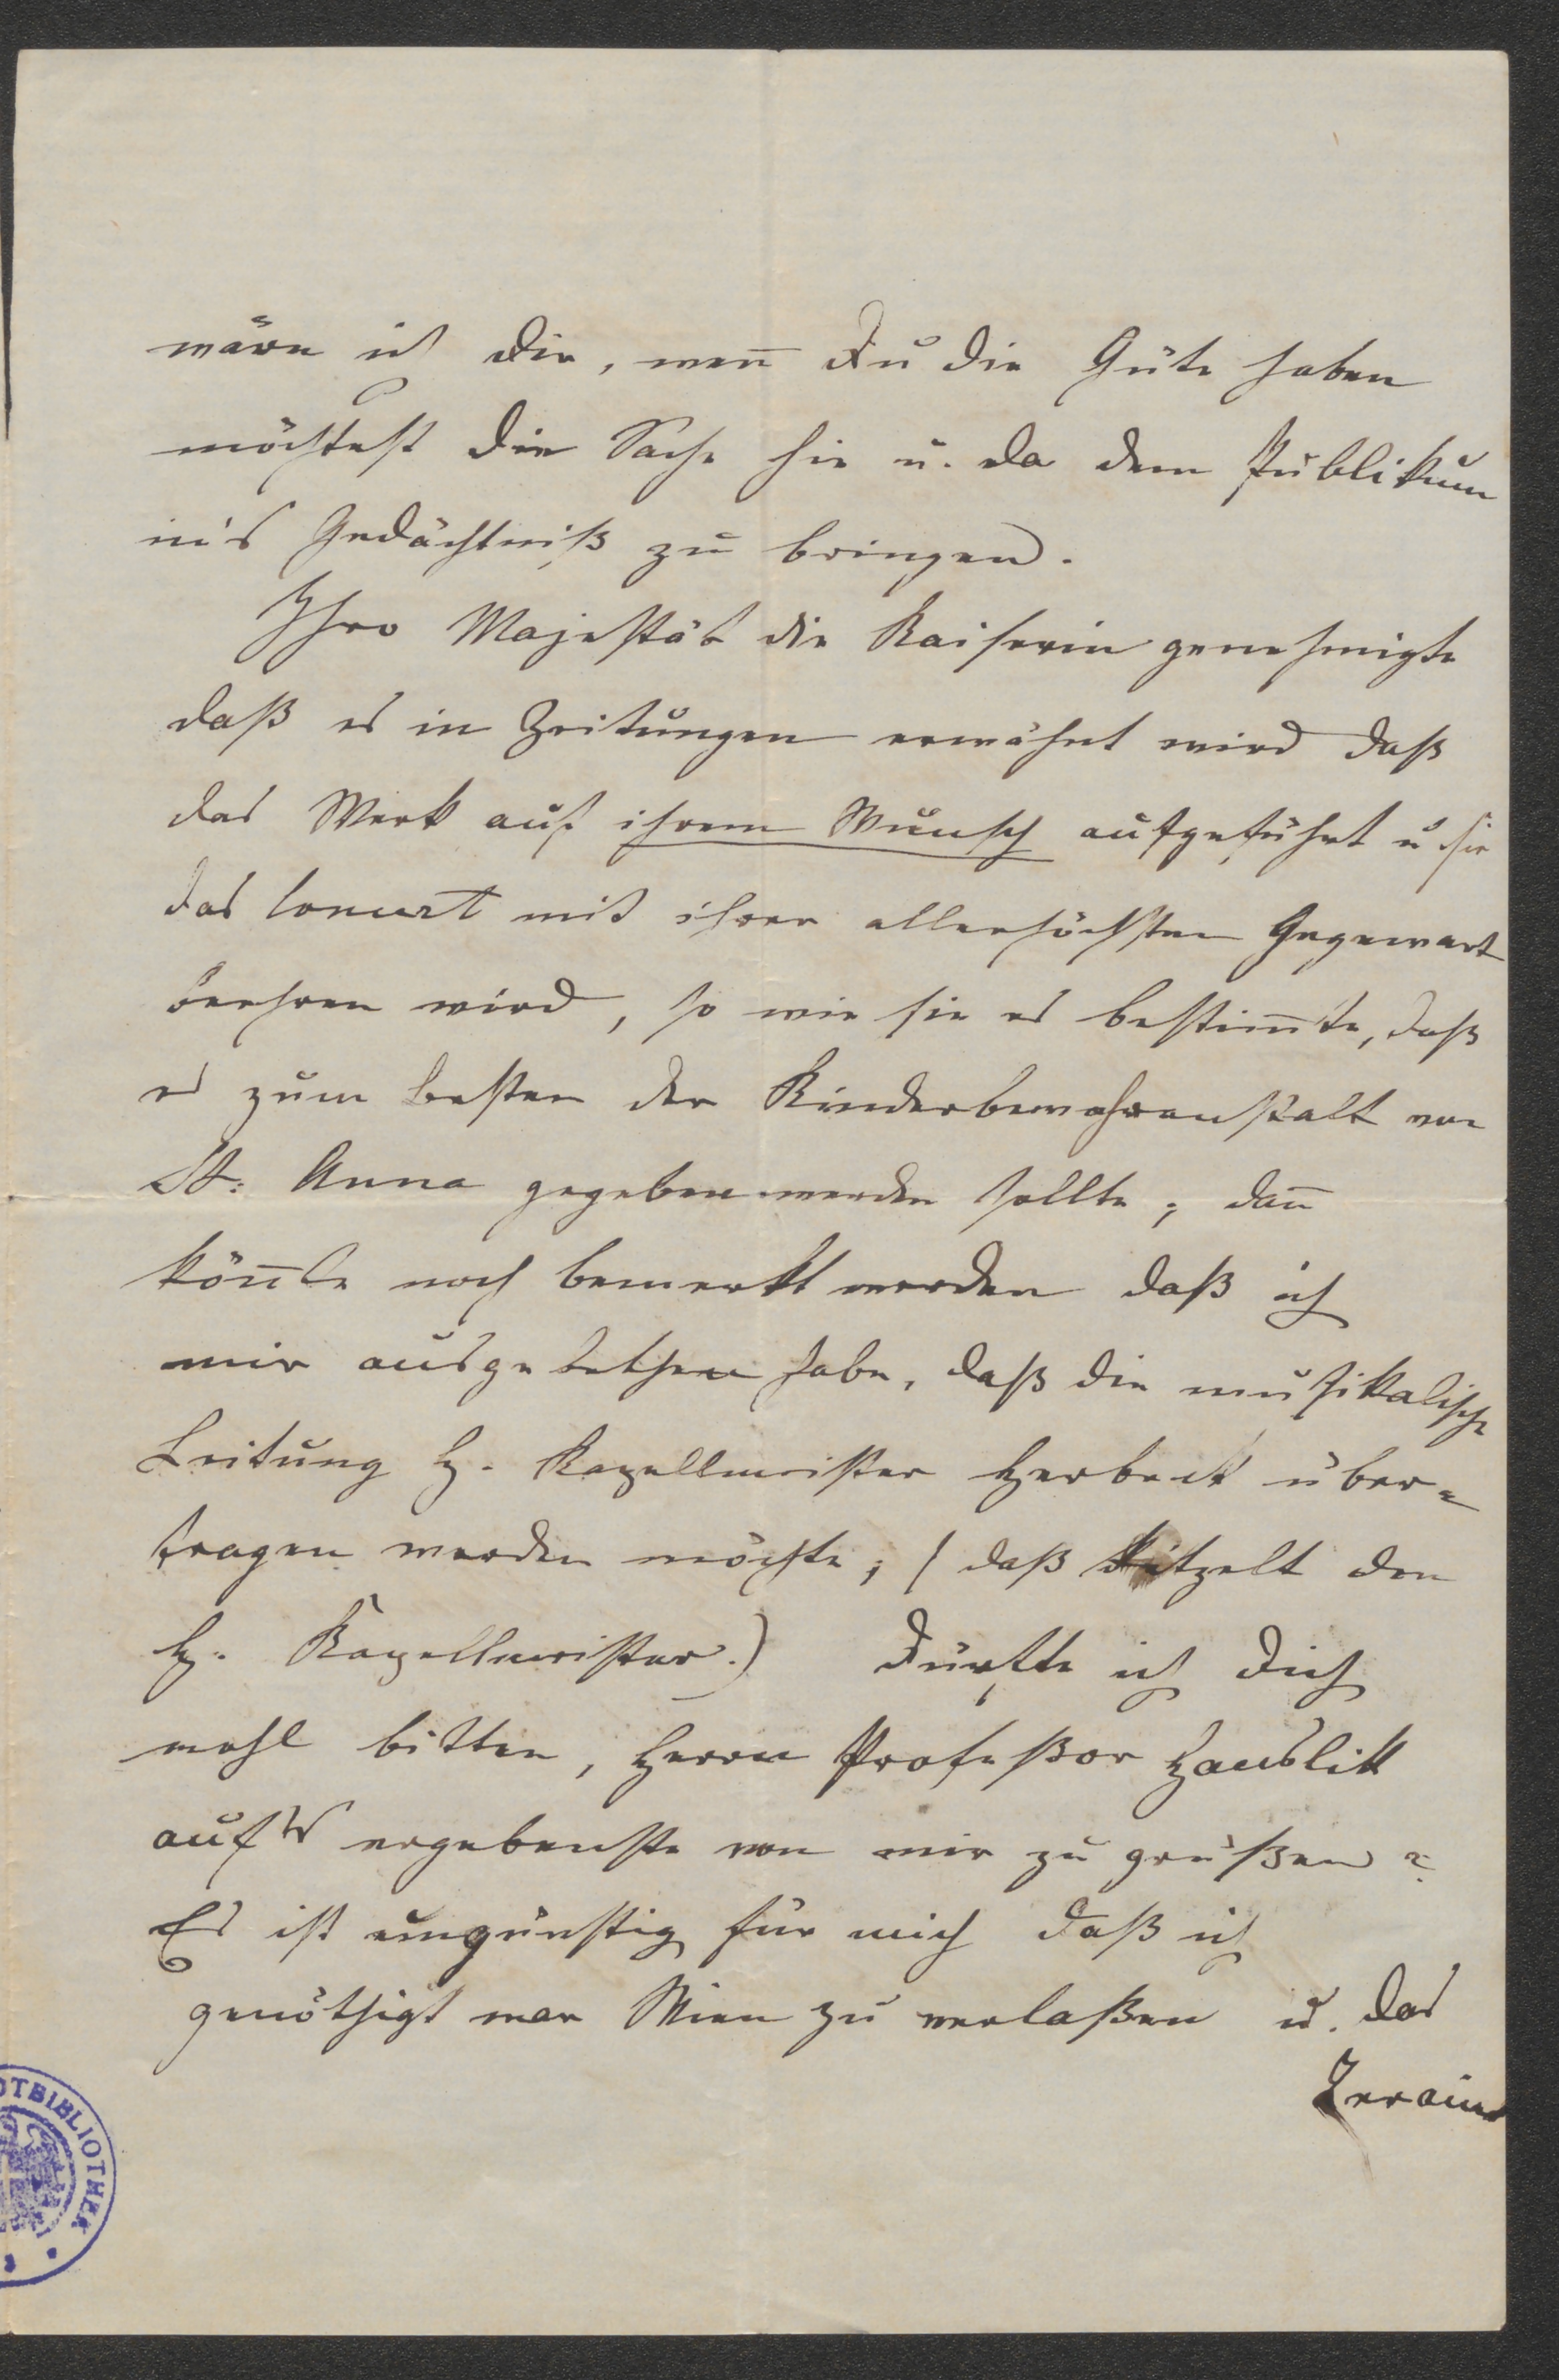 wäre ich Dir, weñ Du die Güte haben
möchtest die Sache hie u. da dem Publikum
in's Gedächtniß zu bringen.
Ihro Majestät die Kaiserin genehmigte
daß es in Zeitungen erwähnt wird daß
das Werk auf ihrem Wunsch aufgeführt u sie
das Concert mit ihrer allerhöchsten Gegenwart
beehren wird, so wie sie es bestim̄te, daß
es zum besten der Kinderbewahranstalt von
St: Anna gegeben werden sollte; dañ
köñte noch bemerkt werden daß ich
mir ausgebethen habe, daß die musikalische
Leitung H. Kapellmeister Herbeck über=
tragen werden möchte; (daß kitzelt den
H. Kapellmeister.) Dürfte ich Dich
wohl bitten, Herrn Profeßor Hanslik
auf's ergebenste von mir zu grüßen?
Es ist ungünstig für mich daß ich
genöthigt war Wien zu verlaßen u. das
Terain
OTBIBLIOTHEK